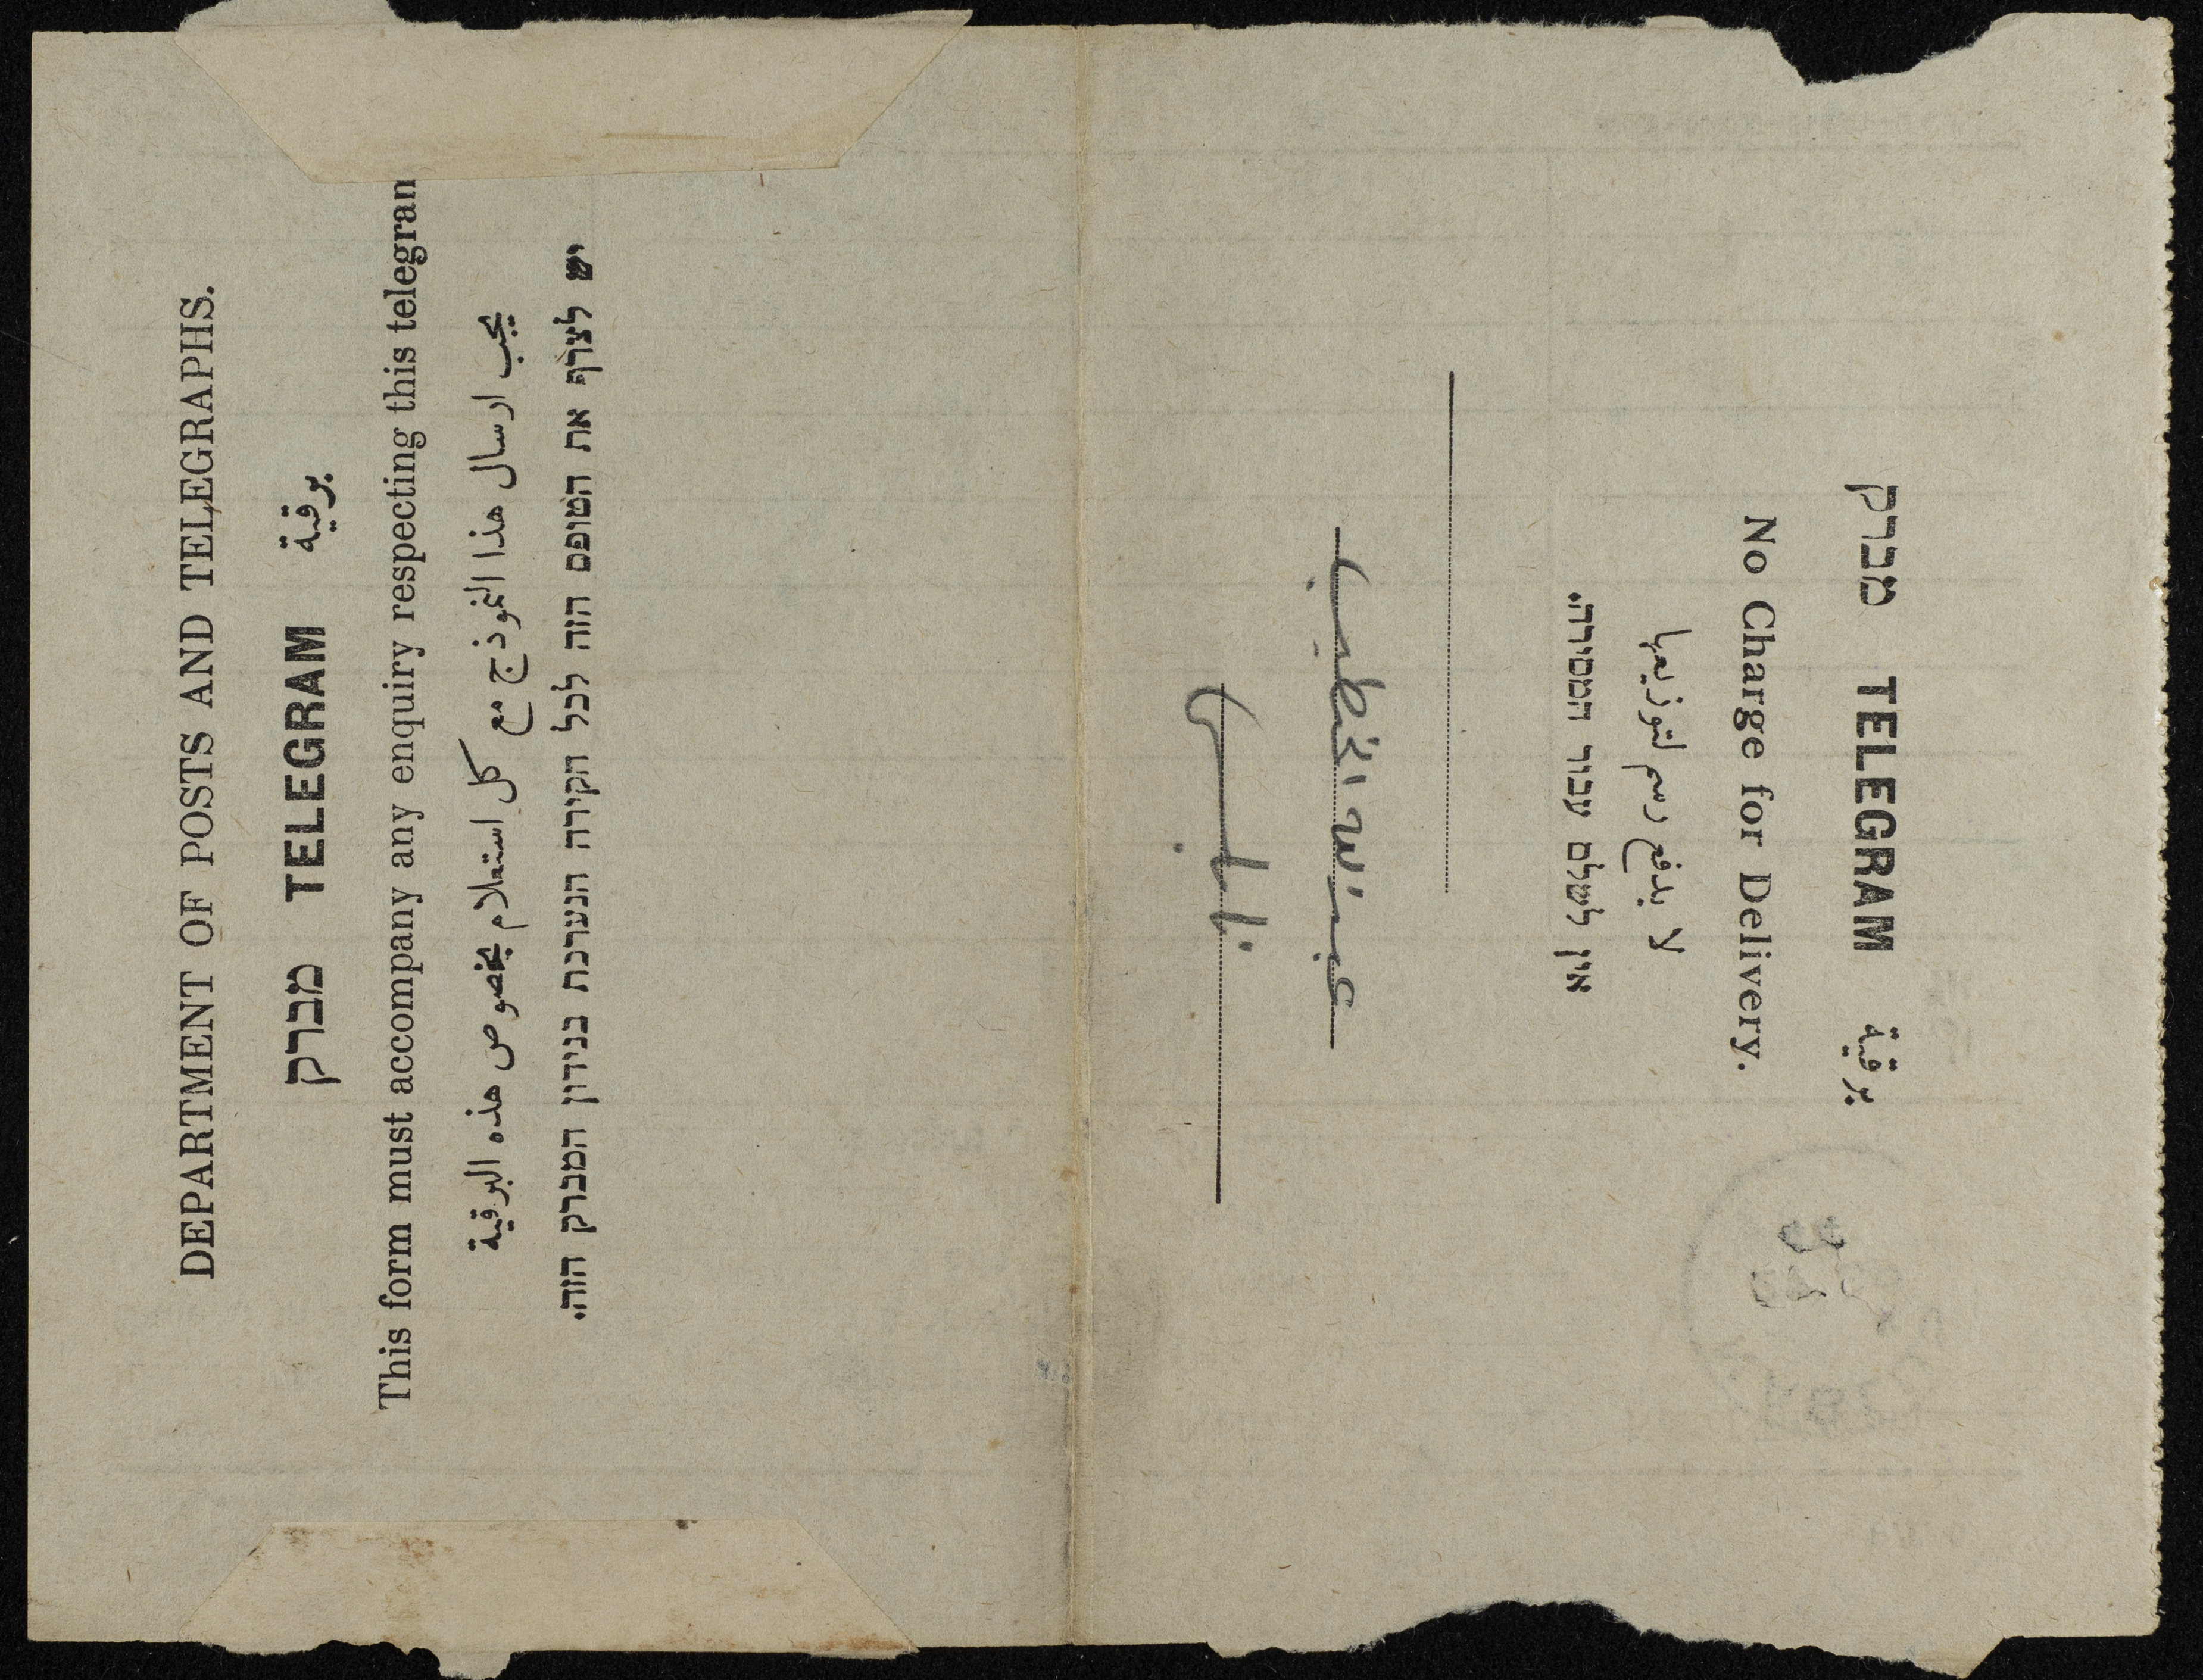 DEPARTMENT OF POSTS AND TELEGRAPHS.
מברק TELEGRAM برقية
This form must accompany any enquiry respecting this telegram
يجب ارسال هذا النموذج مع كل استعلام بخصوص هذه البرقية
יש לצרף את הטופס הזה לכל חקירה הנערכת בנידון המברק הזה.
מברק TELEGRAM برقية
No Charge for Delivery.
لا يدفع رسم لتوزيعها
אין לשלם עבור המסירה.
عبد الله الخطيب
نابلس